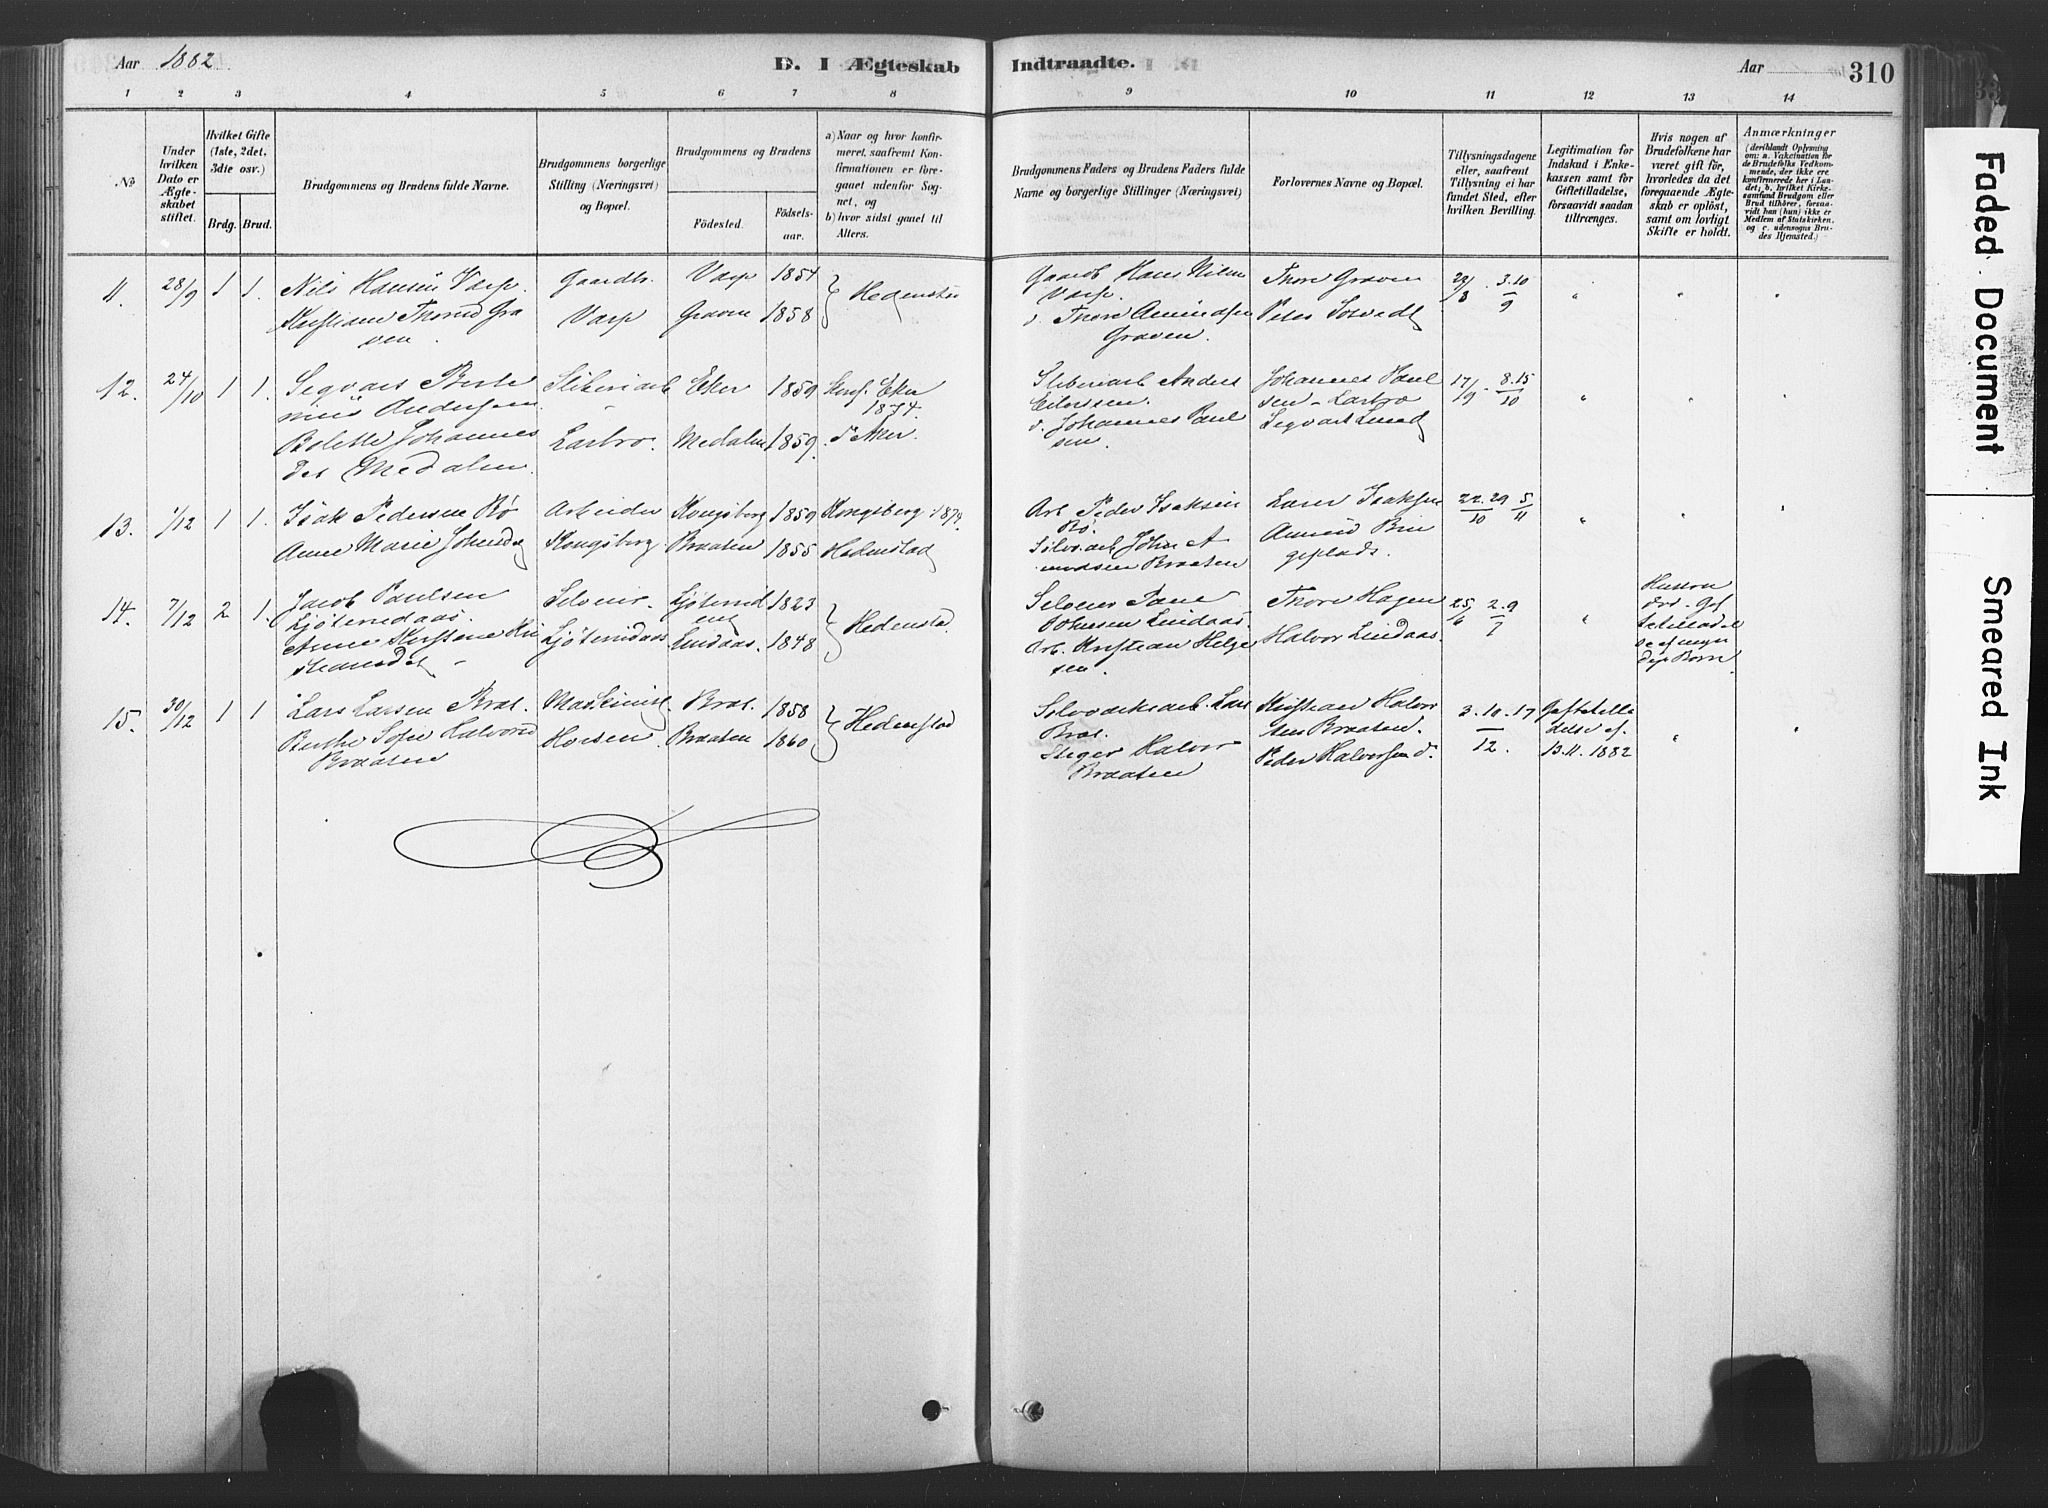 Aar 1882
D. I Ægteskab Indtraadte.
Aar 310
1 2 3 4 5 6 7 8 9 10 11 12 13 14
No
Under hvilken Dato er Ægteskabet stiftet.
Hvilket Gifte (1ste, 2det, 3die osv.)
Brdg. Brud.
Brudgommens og Brudens fulde Navne.
Brudgommens borgerlige Stilling (Næringsvei) og Bopæl.
Brudgommens og Brudens
Födested.
Födselsaar.
a) Naar og hvor konfirmeret, saafremt Konfirmationen er foregaaet udenfor Sognet, og
b) hvor sidst gaaet til Alters.
Brudgommens Faders og Brudens Faders fulde Navne og borgerlige Stillinger (Næringsvei)
Forlovernes Navne og Bopæl.
Tillysningsdagene eller, saafremt Tillysning ei har fundet Sted, efter hvilken Bevilling.
Legitimation for Indskud i Enkekassen samt for Giftetilladelse, forsaavidt saadan tiltrænges.
Hvis nogen af Brudefolkene har været gift för, hvorledes da det foregaaende Ægteskab er oplöst, samt om lovligt Skifte er holdt.
Anmærkninger (deriblandt Oplysning om: a. Vakcination for de Brudefolks Vedkommende, der ikke ere konfirmerede her i Landet; b. hvilket Kirkesamfund Brudgom eller Brud tilhörer, forsaavidt han (hun) ikke er Medlem af Statskirken, og c. udensogns Brudes Hjemsted.)
11. 28/9 1 1. Nils Hansen Varp. Gaardb. Varp 1854 Hedenstad
Kristiane Thorsd Graven. Varp Graven 1858
Gaardb Hans Nilsen Varp.
Thore Amundsen Graven.
Thore Graven
Peter
29/8 . 3.10/9 " " "
12. 24/10 1 1. Segvart Andersen Sliberiarb Eker 1859 Konf. Eker 1874.
Bolette Johannesdet Medalen. Larbro. Medalen 1859.
Sliberiarb Anders Eilersen.
Johannes Paulsen.
Johannes Paulsen - Larbro
Segvart Lund
17/9 . 8.15/10 " " "
13. 1/12 1 1. Isak Pedersen Bø Arbeider Kongsberg 1859 Kongsberg 1874.
Anne Marie Johnsd Kongsberg. Braaten 1855 Hedenstad
Arb Peder Isaksen Bø.
Sölvarb John Amundsen Braaten
Lars Isaksen
Amund Brugeplads.
22.29/10 5/11 " " "
14. 7/12 2 1. Jacob Paulsen Ljöterudaas. Ljöterud 1823 Hedenstad.
Anne Kirstine Kristiansdet - Ljöterudaas Lindaas 1848
Arb. Kristian Helgesen.
Thore Hagen
Halvor Lindaas.
25/6 2.9/7 "
Börn.
15. 30/12 1 1 Lars Larsen Brat. Maskinist Brat. 1858 Hedenstad
Berthe Sofie Halvorsd Braaten Braaten 1860
Sölvværksarb. Lars Brat.
Stiger Halvor Braaten
Kristian Halvorsen Braaten.
Peder Halvorsen do.
3.10.17/12.
Giftetilladelse af 13.11.1882 " "
Faded Document
Smeared Ink